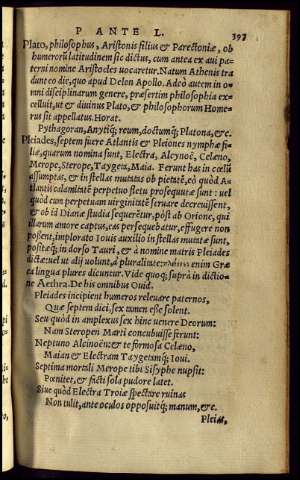 P ANTE L.
393
Plato, philosophus, Aristonis filius & Parectoniæ, ob
humerorũ latitudinem sic dictus, cum antea ex aui pa-
terni nomine Aristocles uocaretur. Natum Athenis tra
dunt eo die, quo apud Delon Apollo. Adeò autem in o-
mni disciplinarum genere, præsertim philosophia ex-
celluit, ut & diuinus Plato, & philosophorum Home-
rus sit appellatus. Horat.
Pythagoran, Anytiq; reum, doctumq; Platona, &c.
Pleiades, septem fuere Atlantis & Pleiones nymphæ fi-
liæ, quarum nomina sunt, Electra, Alcynoë, Celæno,
Merope, Sterope, Taygeta, Maia. Ferunt has in cœlũ
assumptas, & in stellas mutatas ob pietatẽ, eò quòd A-
tlantis calamitatẽ perpetuo fletu prosequutæ sunt: uel
quòd cum perpetuam uirginitatẽ seruare decreuissent,
& ob id Dianæ studia sequerẽtur, pòst ab Orione, qui
illarum amore captus, eas persequebatur, effugere non
possent, implorato Iouis auxilio in stellas mutatæ sunt,
positæq; in dorso Tauri, & à nomine matris Pleiades
dictæ: uel ut alij uolunt, à pluralitate: enim Græ
ca lingua plures dicuntur. Vide quoq; suprà in dictio-
ne Aethra. De his omnibus Ouid.
Pleiades incipient humeros releuare paternos,
Quæ septem dici, sex tamen esse solent.
Seu quòd in amplexus sex hinc uenere Deorum:
Nam Steropen Marti concubuisse ferunt:
Neptuno Alcinoën: & te formosa Celæno,
Maian & Electram Taygetemq; Ioui.
Septima mortali Merope tibi Sisyphe nupsit:
Pœnitet, & facti sola pudore latet.
Siue quòd Electra Troiæ spectare ruinas
Non tulit, ante oculos opposuitq; manum, &c.
Pleias,